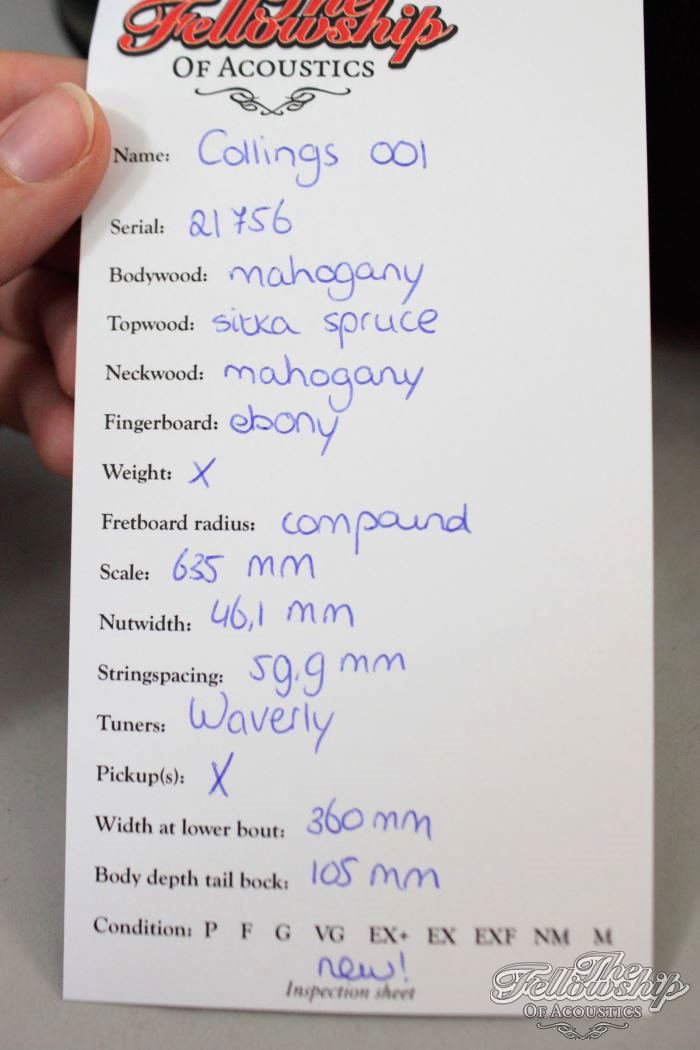 The
Fellowship
OF ACOUSTICS
Name: Collings 001
Serial: 21756
Bodywood: mahogany
Topwood: sitka spruce
Neckwood: mahogany
Fingerboard: ebony
Weight: X
Fretboard radius: compound
Scale: 635 mm
Nutwidth: 46,1 mm
Stringspacing: 59,9 mm
Tuners: Waverly
Pickup(s): X
Width at lower bout: 360 mm
Body depth tail bock: 105 mm
Condition: P F G VG EX+ EX EXF NM M
new!
Inspection sheet
The
Fellowship
OF ACOUSTICS